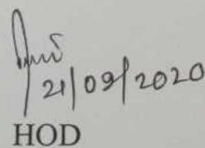 21/09/2020
HOD